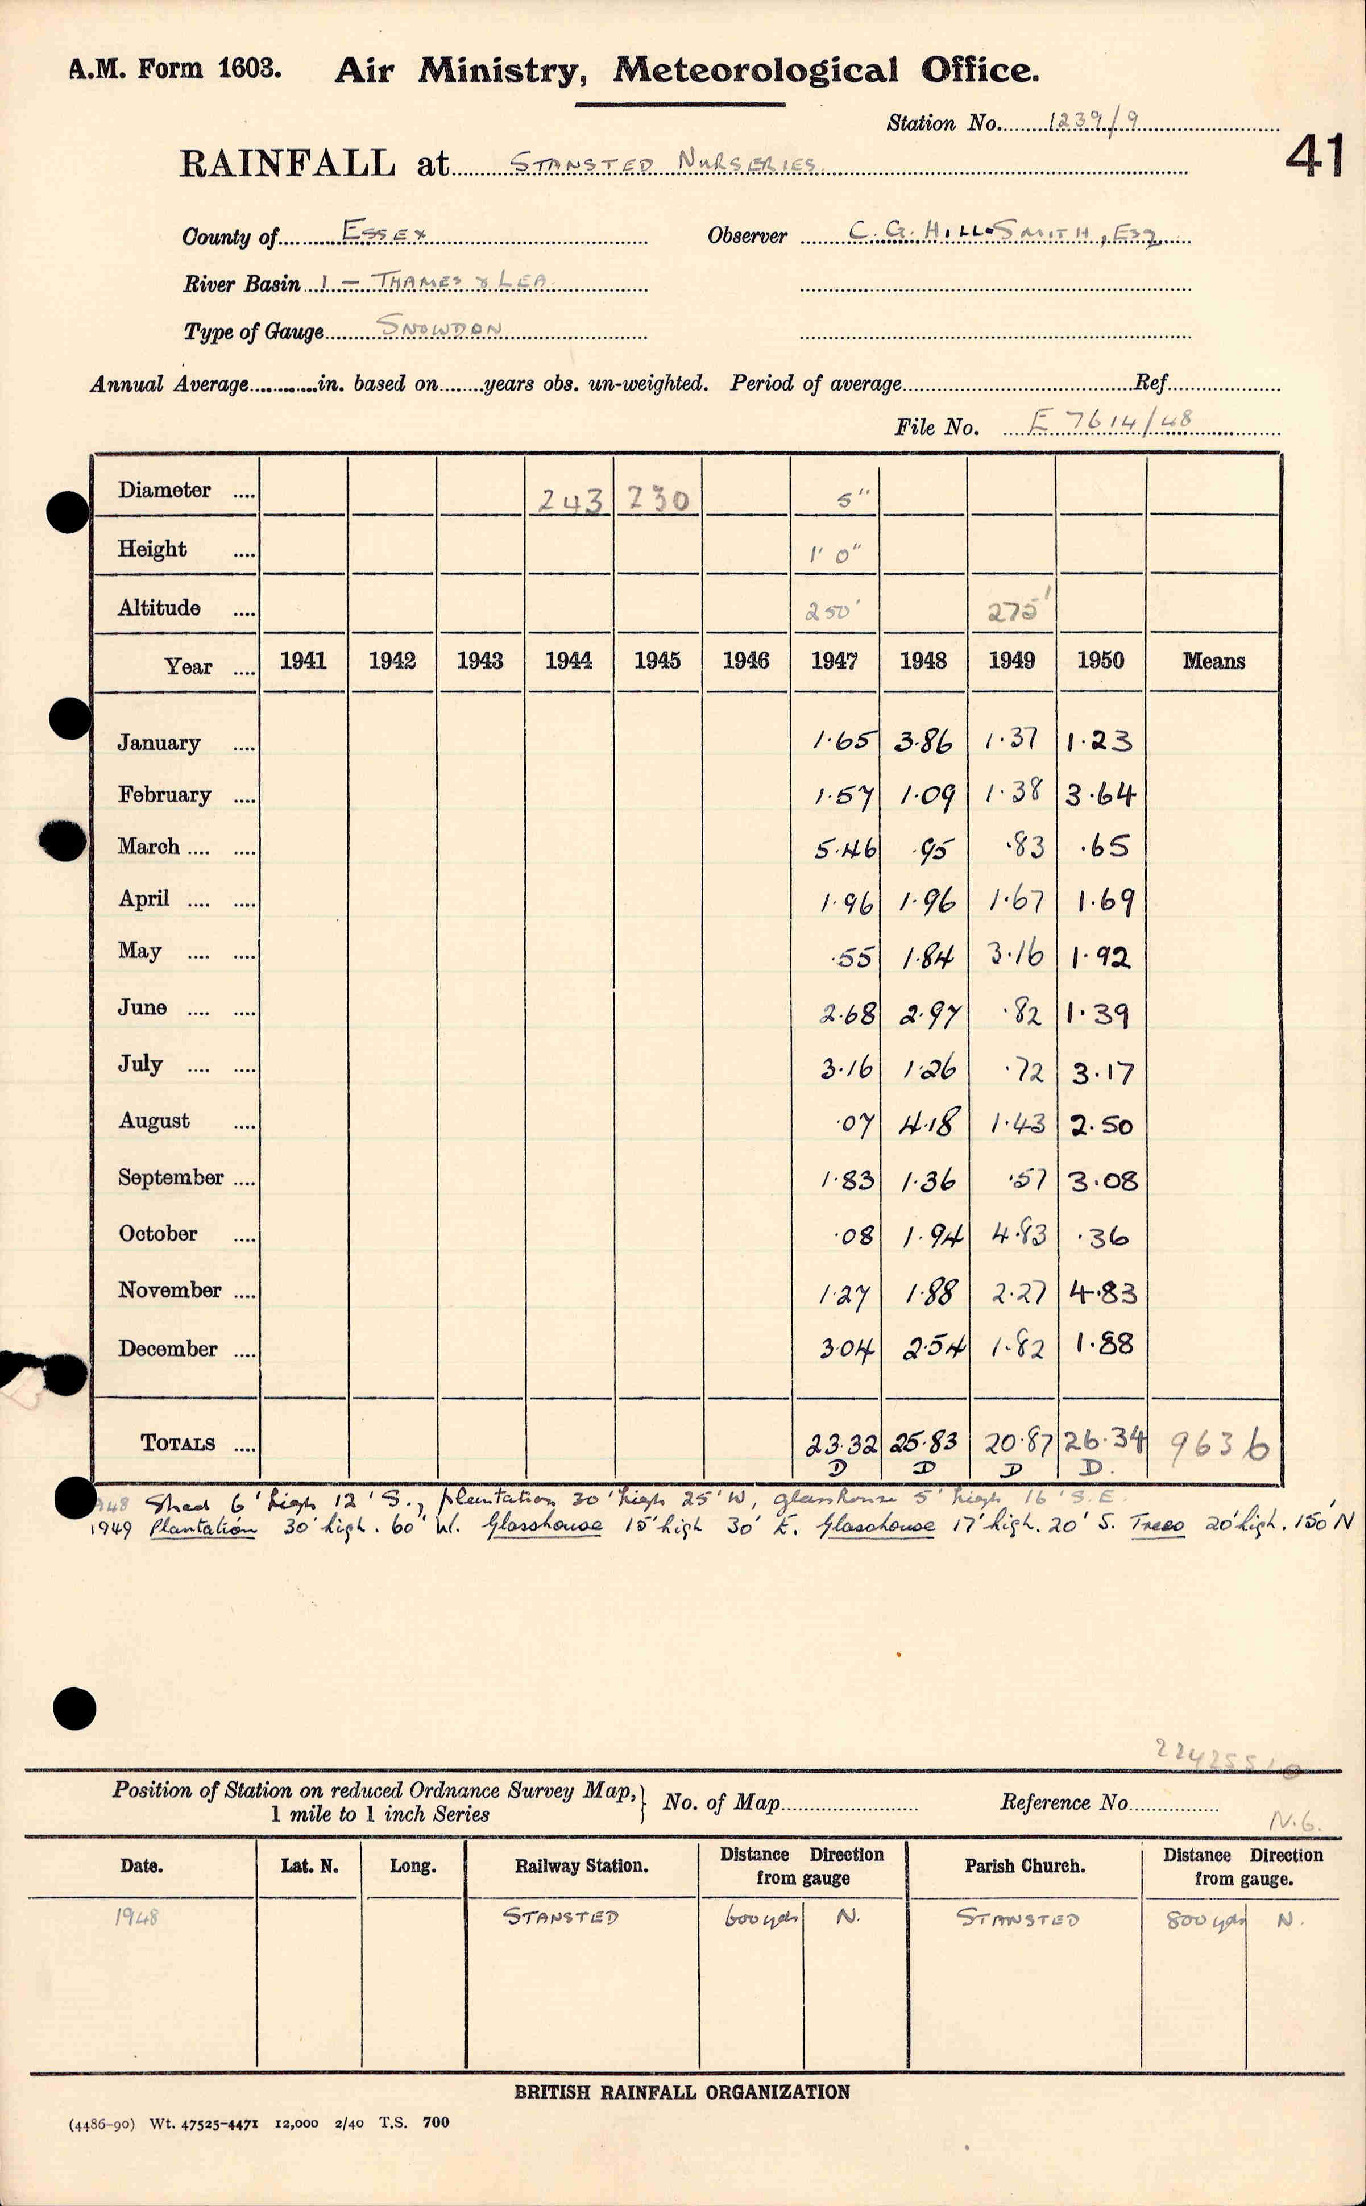 A.M. Form 1603. Air Ministry, Meteorological Office.
Station No. 1239/9
41
RAINFALL at STANSTED NURSERIES
County of ESSEX Observer C. G. HILL-SMITH, Esq
River Basin 1 - THAMES & LEA
Type of Gauge SNOWDON
Annual Average............in. based on.......years obs. un-weighted. Period of average..........Ref..........
File No. E 7614/48
Diameter .... 243 230 5"
Height .... 1' 0"
Altitude .... 250' 275'
Year .... 1941 1942 1943 1944 1945 1946 1947 1948 1949 1950 Means
January .... 1.65 3.86 1.37 1.23
February .... 1.57 1.09 1.38 3.64
March .... .... 5.46 .95 .83 .65
April .... .... 1.96 1.96 1.67 1.69
May .... .... .55 1.84 3.16 1.92
June .... .... 2.68 2.97 .82 1.39
July .... .... 3.16 1.26 .72 3.17
August .... .07 4.18 1.43 2.50
September .... 1.83 1.36 .57 3.08
October .... .08 1.94 4.83 .36
November .... 1.27 1.88 2.27 4.83
December .... 3.04 2.54 1.82 1.88
TOTALS .... 23.32 25.83 20.87 26.34 9636
D D D D.
1948 Shed 6' high 12' S., plantation 30' high 25' W, glasshouse 5' high 16' S.E.
1949 Plantation 30' high. 60' W. Glasshouse 15' high 30' E. Glasshouse 17' high. 20' S. Trees 20' high. 150' N
Position of Station on reduced Ordnance Survey Map,} No. of Map.......... Reference No..........
1 mile to 1 inch Series
N.G.
Date. Lat. N. Long. Railway Station. Distance Direction from gauge Parish Church. Distance Direction from gauge.
1948 STANSTED 600 yds N. STANSTED 800 yds N.
BRITISH RAINFALL ORGANIZATION
(4486-90) Wt. 47525-4471 12,000 2/40 T.S. 700